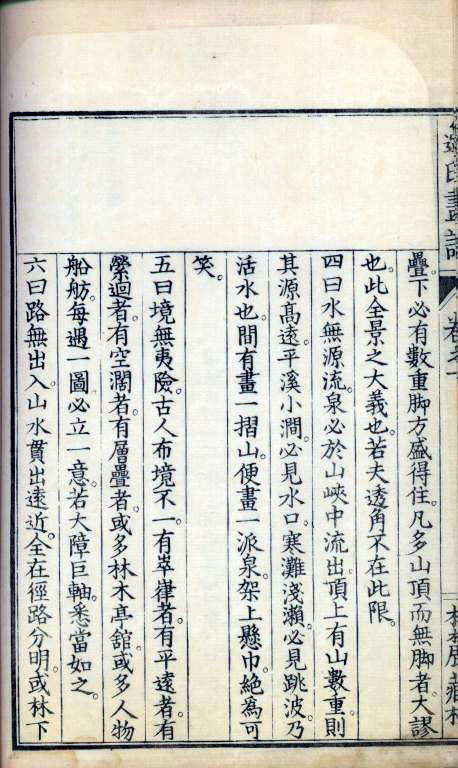 疊。下必有數重脚方盛得住。凡多山頂而無脚者。大謬
也。此全景之大義也。若夫透角不在此限。
四曰水無源流。泉必於山峽中流出。頂上有山數重。則
其源高遠。平溪小澗。必見水口。寒灘淺瀨。必見跳波。乃
活水也。間有畫一摺山。便畫一派泉。架上懸巾。絕爲可
笑。
五曰境無夷險。古人布境不一。有崒嵂者。有平遠者。有
縈迴者。有空濶者。有層疊者。或多林木亭舘。或多人物
船舫。每遇一圖。必立一意。若大障巨軸。悉當如之。
六曰路無出入。山水貫出遠近。全在徑路分明。或林下